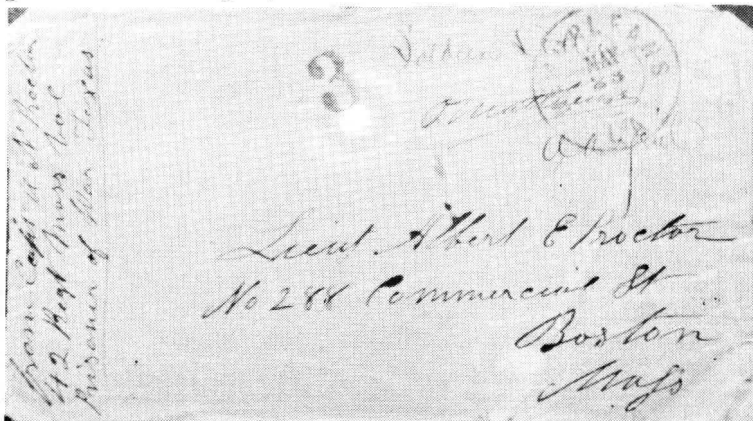 from Capt
42 Regt Mass Vol
Prisoner of War Texas
3
Soldiers
ORLEANS
MAY
LA
Lieut Albert E Proctor
No 288 Commercial St
Boston
Mass